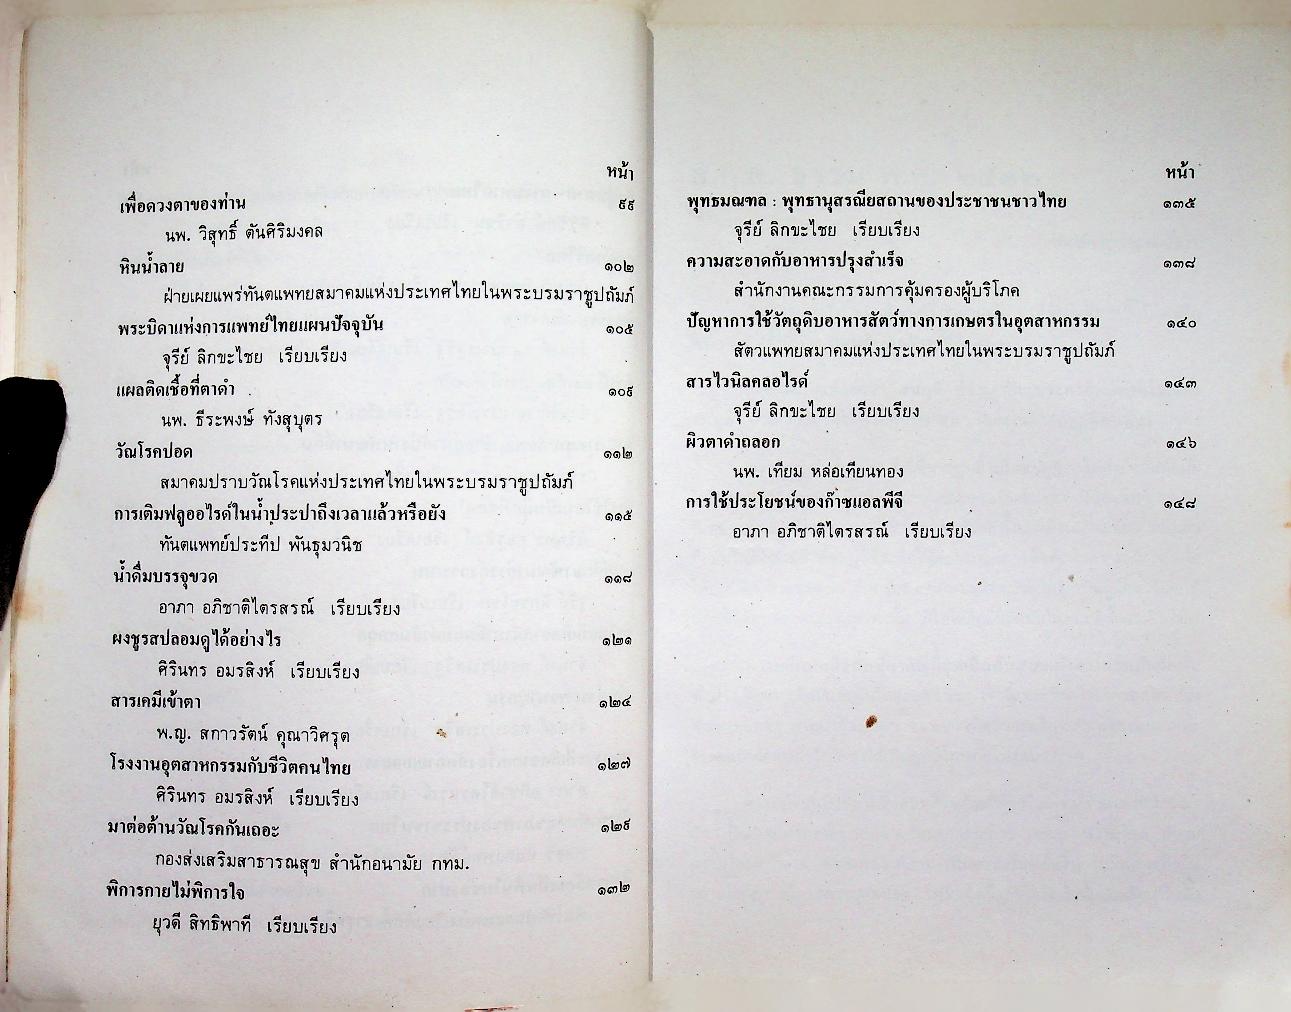 หน้า
เพื่อดวงตาของท่าน ๙๙
นพ. วิสุทธิ์ ตันศิริมงคล
หินน้ำลาย ๑๐๒
ฝ่ายเผยแพร่ทันตแพทยสมาคมแห่งประเทศไทยในพระบรมราชูปถัมภ์
พระบิดาแห่งการแพทย์ไทยแผนปัจจุบัน ๑๐๕
จุรีย์ ลิกขะไชย เรียบเรียง
แผลติดเชื้อที่ตาดำ ๑๐๙
นพ. ธีระพงษ์ ทังสุบุตร
วัณโรคปอด ๑๑๒
สมาคมปราบวัณโรคแห่งประเทศไทยในพระบรมราชูปถัมภ์
การเติมฟลูออไรด์ในน้ำประปาถึงเวลาแล้วหรือยัง ๑๑๕
ทันตแพทย์ประทีป พันธุมวนิช
น้ำดื่มบรรจุขวด ๑๑๘
อาภา อภิชาติไตรสรณ์ เรียบเรียง
ผงชูรสปลอมดูได้อย่างไร ๑๒๑
ศิรินทร อมรสิงห์ เรียบเรียง
สารเคมีเข้าตา ๑๒๔
พ.ญ. สกาวรัตน์ คุณาวิศรุต
โรงงานอุตสาหกรรมกับชีวิตคนไทย ๑๒๗
ศิรินทร อมรสิงห์ เรียบเรียง
มาต่อต้านวัณโรคกันเถอะ ๑๒๙
กองส่งเสริมสาธารณสุข สำนักอนามัย กทม.
พิการกายไม่พิการใจ ๑๓๒
ยุวดี สิทธิพาที เรียบเรียง
หน้า
พุทธมณฑล : พุทธานุสรณียสถานของประชาชนชาวไทย ๑๓๕
จุรีย์ ลิกขะไชย เรียบเรียง
ความสะอาดกับอาหารปรุงสำเร็จ ๑๓๘
สำนักงานคณะกรรมการคุ้มครองผู้บริโภค
ปัญหาการใช้วัตถุดิบอาหารสัตว์ทางการเกษตรในอุตสาหกรรม ๑๔๐
สัตวแพทยสมาคมแห่งประเทศไทยในพระบรมราชูปถัมภ์
สารไวนิลคลอไรด์ ๑๔๓
จุรีย์ ลิกขะไชย เรียบเรียง
ผิวตาดำถลอก ๑๔๖
นพ. เทียม หล่อเทียนทอง
การใช้ประโยชน์ของก๊าซแอลพีจี ๑๔๘
อาภา อภิชาติไตรสรณ์ เรียบเรียง